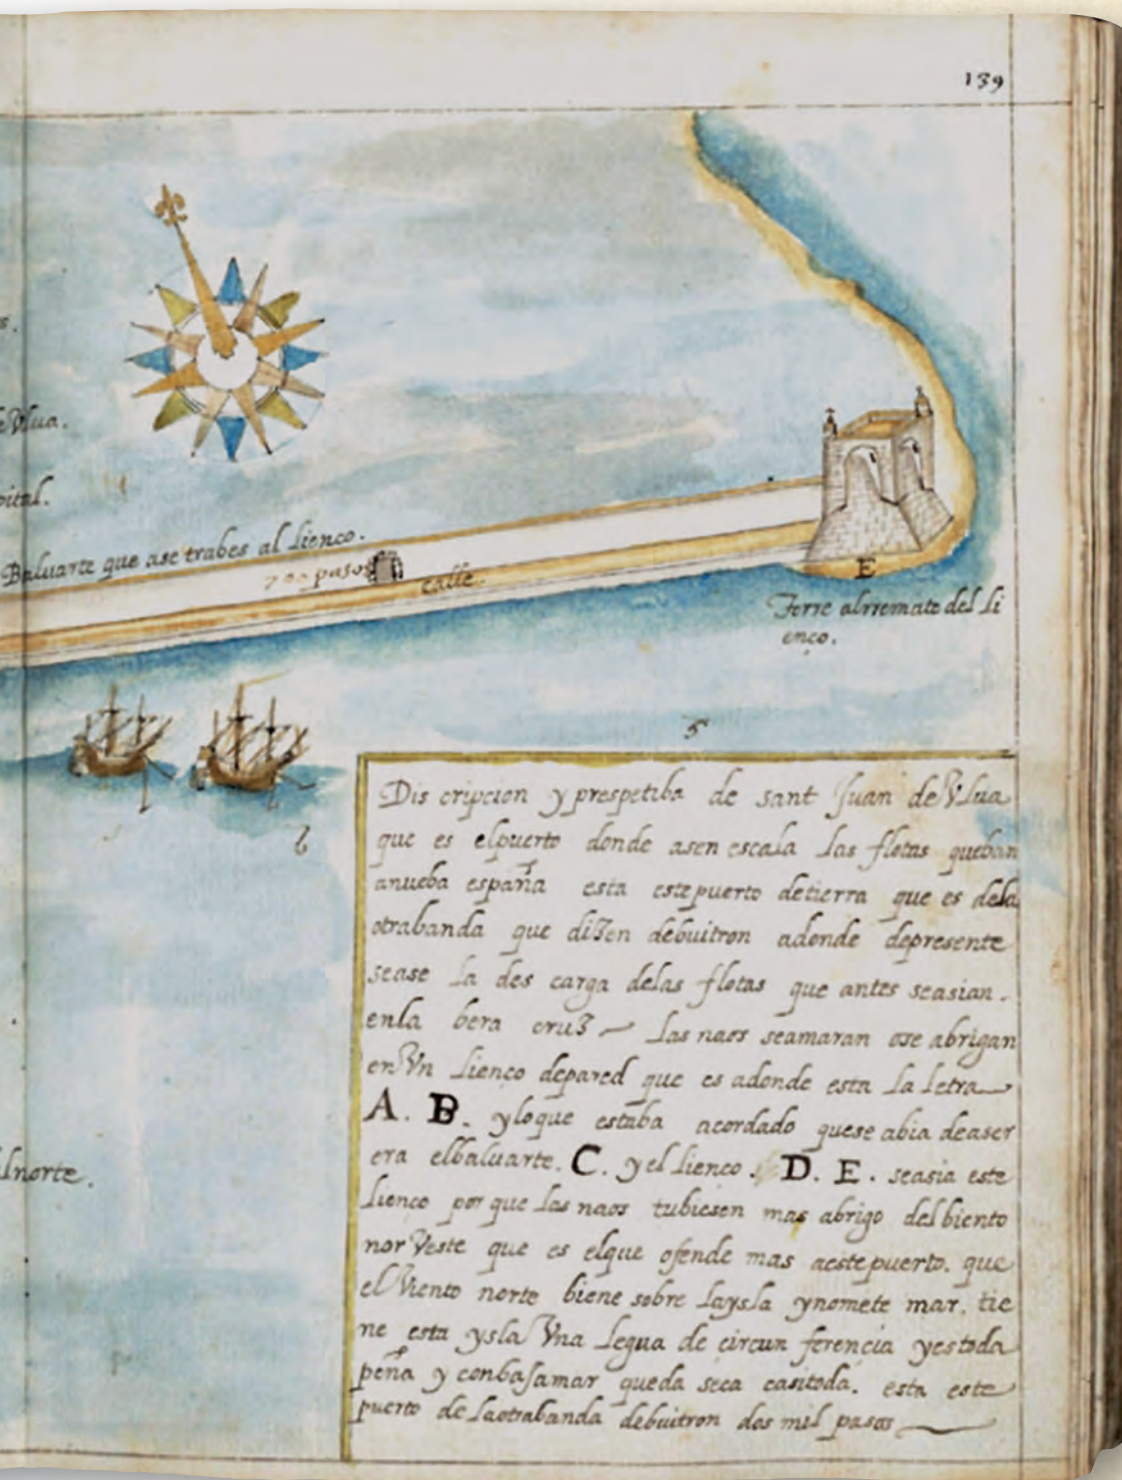 139
s.
de Vlua.
pital.
Baluarte que ase trabes al lienço.
700 pasos
calle.
E
Torre alrremate del li
enço.
5
6
Dis cripcion y prespetiba de sant Juan de Vlua
que es elpuerto donde asen escala las flotas queban
anueba españa esta estepuerto detierra que es dela
otrabanda que diзen debuitron adonde depresente
sease la des carga delas flotas que antes seasian.
enla bera cruz las naos seamaran ose abrigan
en Vn lienço depared que es adonde esta la letra
A. B. yloque estaba acordado quese abia deaser
era elbaluarte. C. yel lienço. D. E. seasia este
lienço por que las naos tubiesen mas abrigo delbiento
nor Veste que es elque ofende mas aestepuerto. que
el Viento norte biene sobre laysla ynomete mar. tie
ne esta ysla Vna legua de circun ferencia yestoda
peña y conbaJamar queda seca casitoda. esta este
puerto de laotrabanda debuitron dos mil pasos
lnorte.